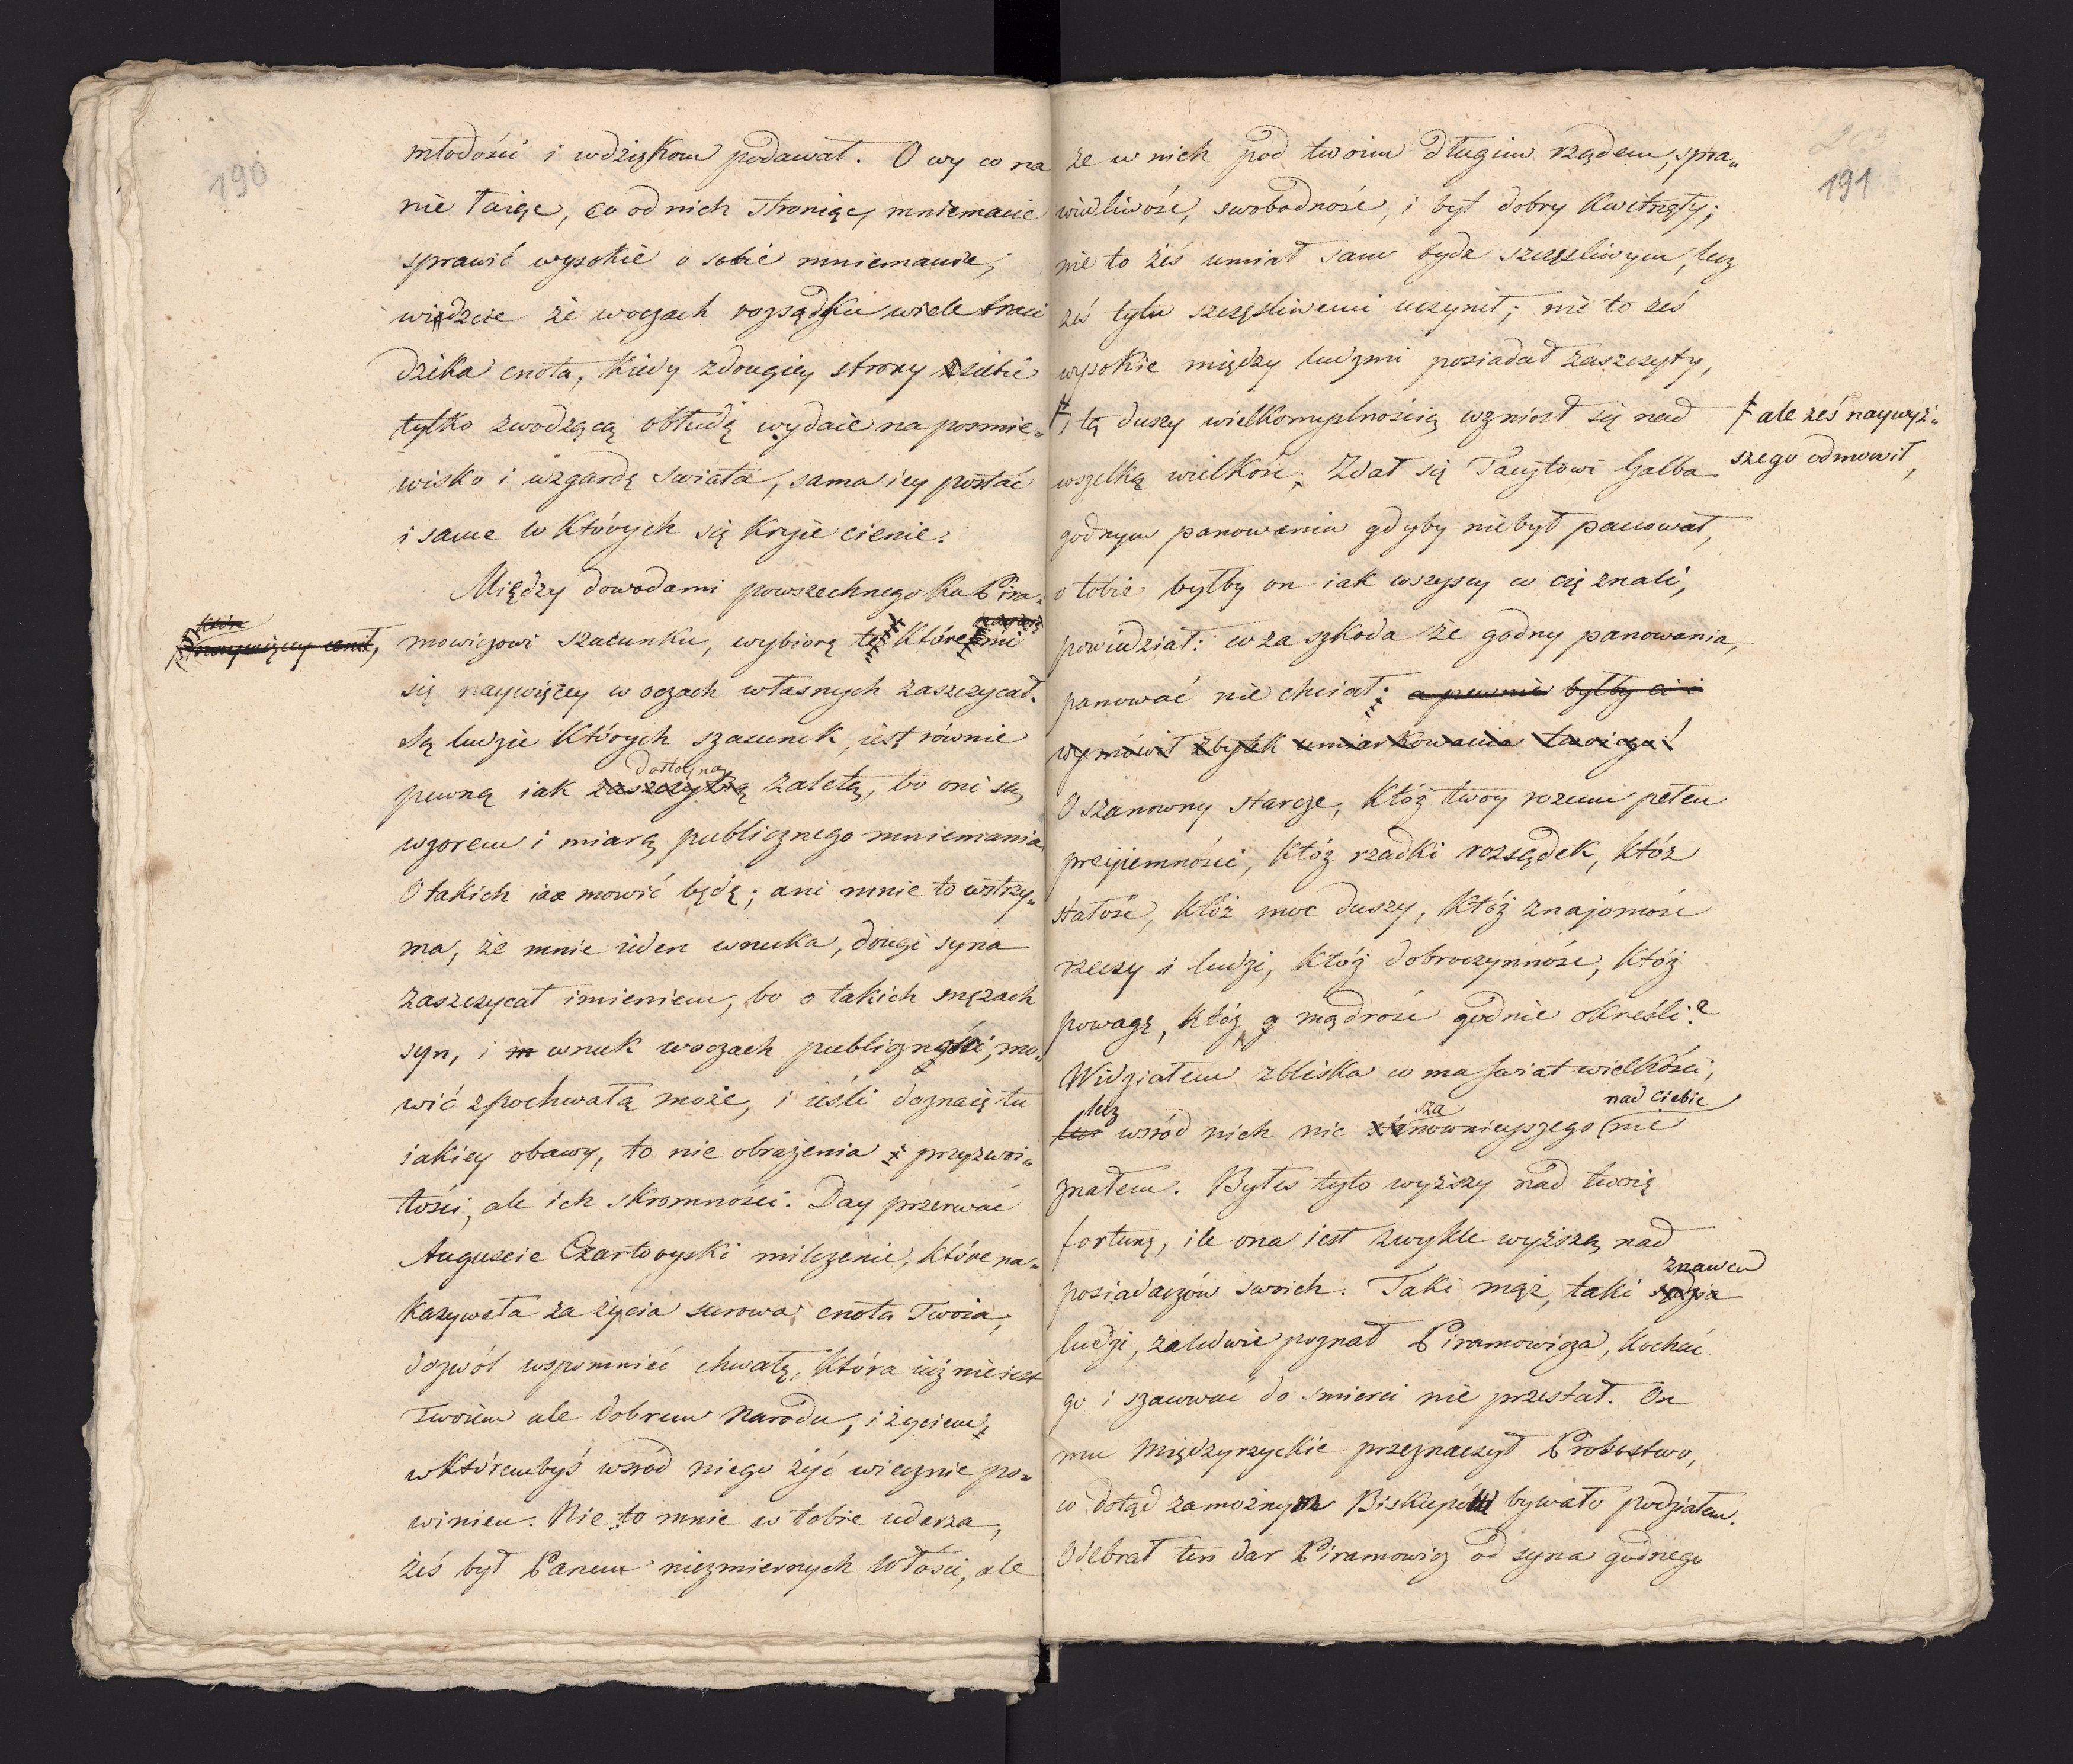 190
młodości i wdziękom podawał. O wy co na
nie łaiąc, co od nich stroniąc, mniemacie
sprawić wysokie o sobie mniemanie,
wiedzcie że w oczach rozsądku wiele traci
dzika cnota, kiedy z drugiey strony siebie
tylko zwodzącą obłudę wydaie na posmie„
wisko i wzgardę swiata, sama iey postać
i same w których się kryie cienie.
Między dowodami powszechnego ku Pira„
która
naywięcey cenił,
mowiczowi szacunku, wybiorę te któremi
się naywięcey w oczach własnych zaszczycał.
Są ludzie których szacunek, iest równie
dostoyną
pewną iak zaszczytną zaletą, bo oni są
wzorem i miarą publicznego mniemania.
O takich iaa mowić będę; ani mnie to wstrzy„
ma, że mnie ieden wnuka, drugi syna
zaszczycał imieniem, bo o takich mężach
syn, i m wnuk w oczach publiczności, mo„
wić z pochwałą może, i ieśli doznaię tu
iakiey obawy, to nie obrażenia przyzwoi„
tości, ale ich skromności. Day przerwać
Auguscie Czartoryski milczenie, które na„
kazywała za życia surowa cnota Twoia,
dozwól wspomnieć chwałę, która iuż nie iest
Twoiem ale dobrem Narodu, i życiem
w którembyś wsród niego żyć wiecznie po„
winien. Nie to mnie w tobie uderza,
żeś był Panem niezmiernych Włości, ale
191
że w nich pod twoim długim rządem, spra„
wiedliwość, swobodność, i byt dobry kwitnęły;
nie to żeś umiał sam bydz szczęsliwym, lecz
żeś tylu szczęsliwemi uczynił; nie to żeś
wysokie między ludzmi posiadał zaszczyty,
ƒ i tą duszy wielkomyslnością wzniosł się nad
ƒ ale żeś naywyż„
szego odmowił,
wszelką wielkość. Zdał się Tacytowi Galba
godnym panowania gdyby nie był panował,
o tobie byłby on iak wszyscy co cię znali,
powiedział: co za szkoda że godny panowania,
panować nie chciał; a pewnie byłby ci i
wymówił zbytek umiarkowania twoiego!
O szanowny starcze, któż twoy rozum pełen
przyiemności, któż rzadki rozsądek, któż
stałość, któż moc duszy, któż znajomość
rzeczy i ludzi, któż dobroczynność, któż
powagę, któż mądrość godnie określi?
Widziałem zbliska co ma swiat wielkości,
lecz wsród nich nic
sza
nownieyszego nie
nad Ciebie
znałem. Byłeś tyło wyższy nad twoię
fortunę, ile ona iest zwykle wyższą nad
posiadaczów swoich. Taki mąż, taki sędzia
znawca
ludzi, zaledwie poznał Piramowicza, kochać
go i szanować do smierci nie przestał. On
mu Międzyrzyckie przeznaczył Probostwo,
co dotąd zamożnym Biskupom bywało podziałem.
Odebrał ten dar Piramowicz od syna godnego